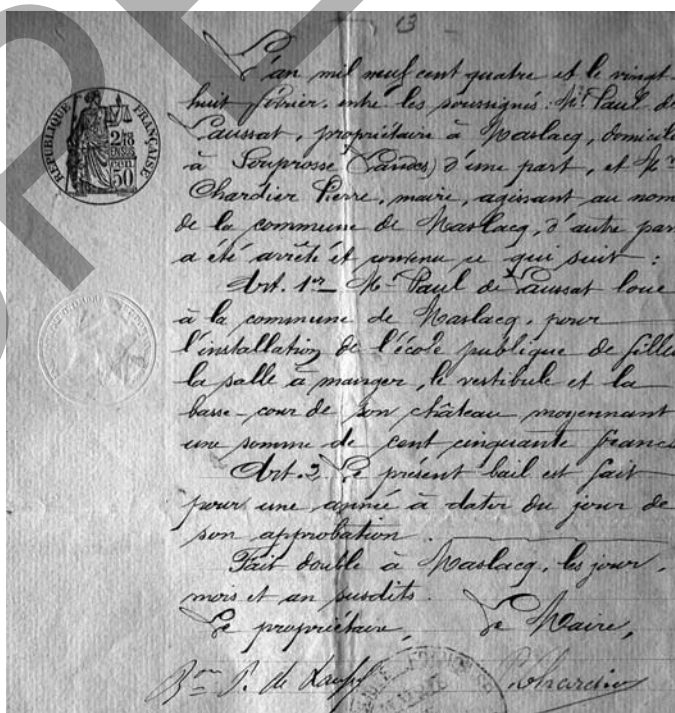 13
L'an mil neuf cent quatre et le vingt-
huit février, entre les soussignés : Mr Paul de
Laussat, propriétaire à Maslacq, domicilié
à Souprosse (Landes) d'une part, et Mr
Chardier Pierre, maire, agissant au nom
de la commune de Maslacq, d'autre part
a été arrêté et convenu ce qui suit :
Art. 1er Mr Paul de Laussat loue
à la commune de Maslacq, pour
l'installation de l'école publique de filles
la salle à manger, le vestibule et la
basse-cour de son château moyennant
une somme de cent cinquante francs
Art. 2 Le présent bail est fait
pour une année à dater du jour de
son approbation.
Fait double à Maslacq, les jour,
mois et an susdits.
Le propriétaire, Le Maire,
Bon P. de Lauss
RÉPUBLIQUE FRANÇAISE
50